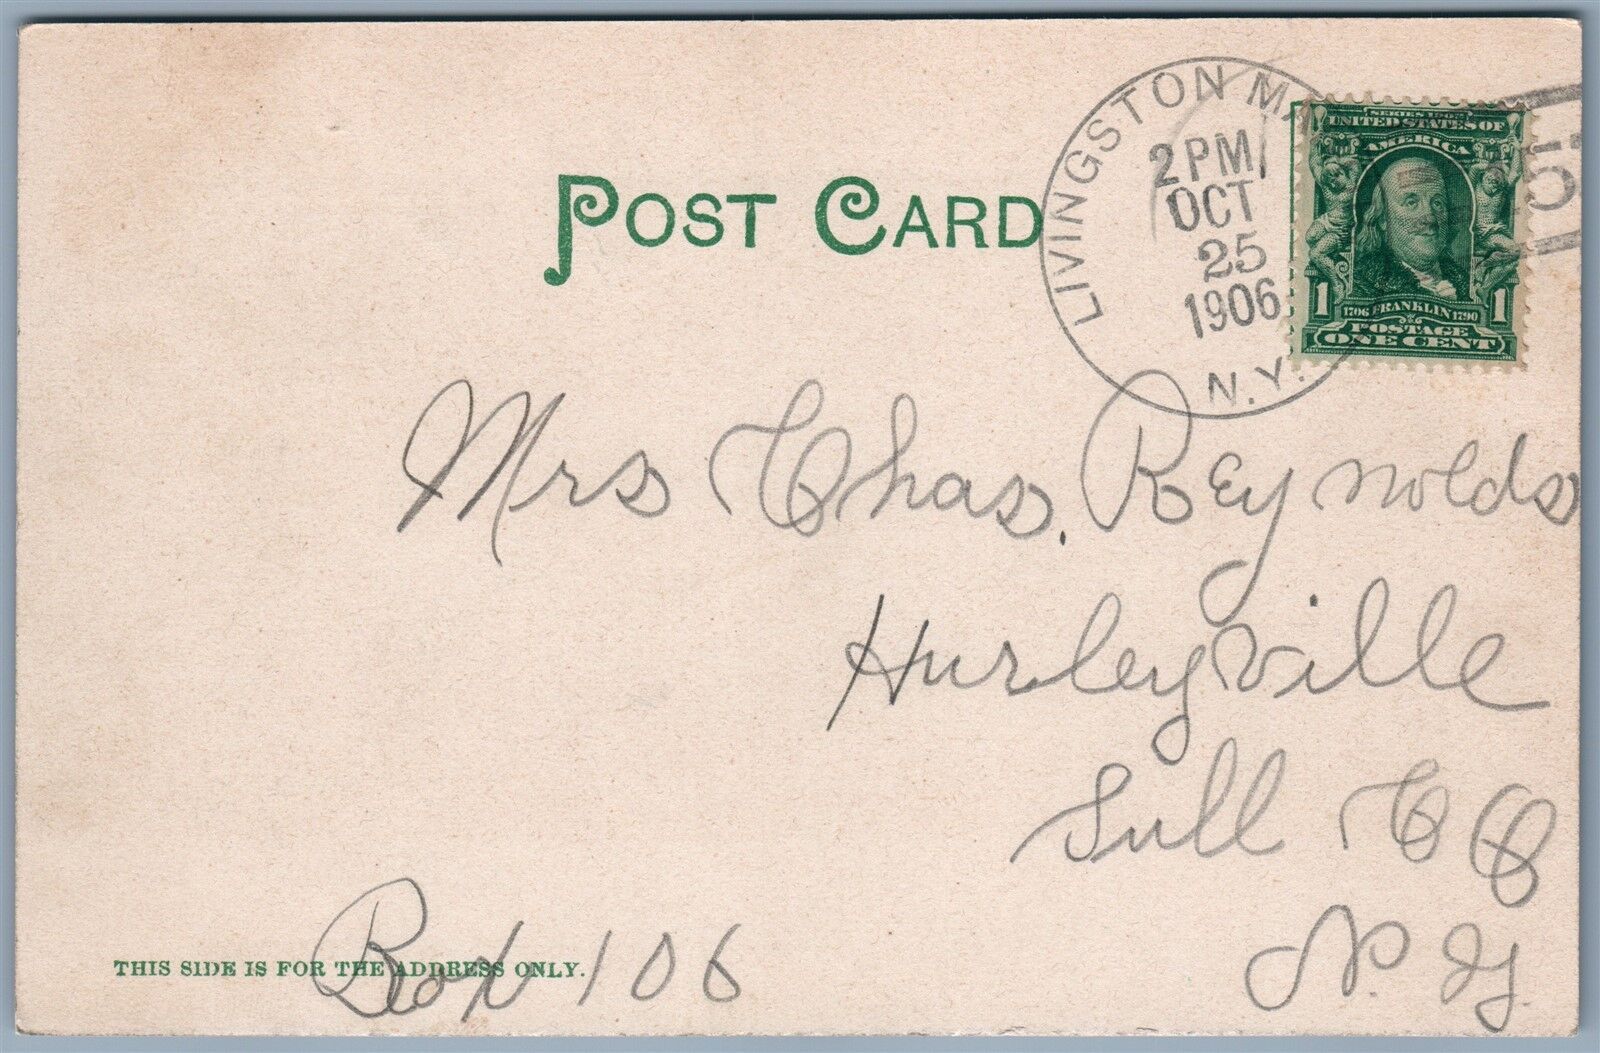 POST CARD
LIVINGSTON MA
2 PM
OCT
25
1906
N.Y.
SERIES 1902
UNITED STATES OF
AMERICA
1 1706 FRANKLIN 1790 1
POSTAGE
ONE CENT
5
Mrs Chas. Reynolds
Hurleyville
Sull Co
N. Y.
Box 106
THIS SIDE IS FOR THE ADDRESS ONLY.